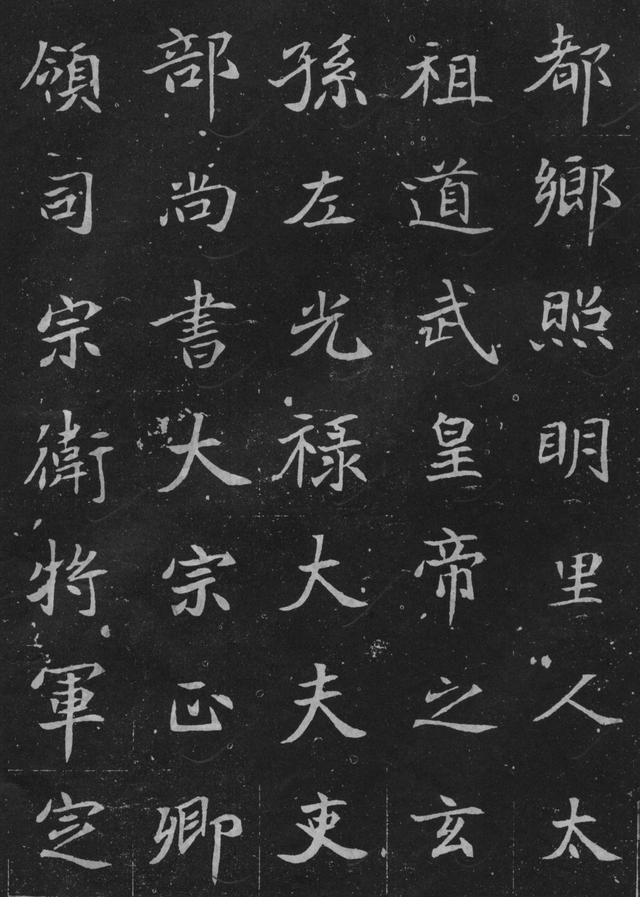 都鄉照明里人太
祖道武皇帝之玄
孫左光祿大夫吏
部尚書大宗正卿
領司宗衛將軍定